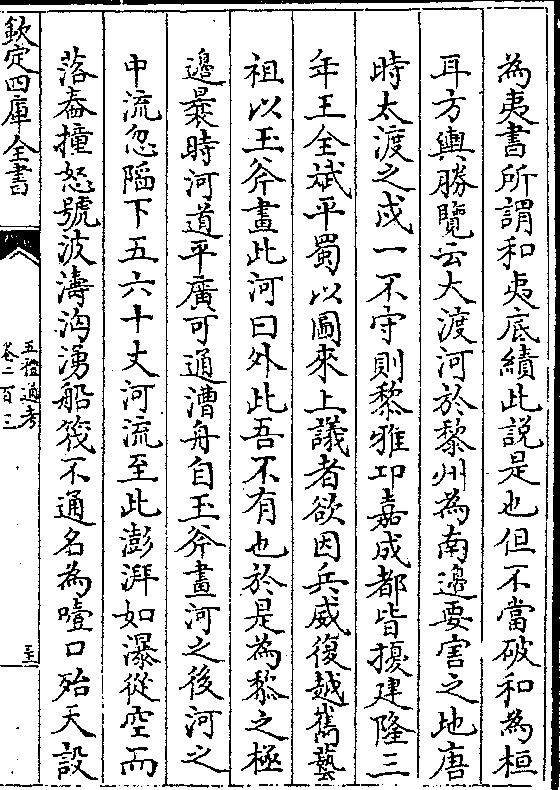 為夷書所謂和夷底績此説是也但不當破和為桓
耳方輿勝覽云大渡河於黎州為南邊要害之地唐
時太渡之戍一不守則黎雅邛嘉成都皆擾建隆三
年王全斌平蜀以圖來上議者欲因兵威復越嶲藝
祖以玉斧畫此河曰外此吾不有也於是為黎之極
邊曩時河道平廣可通漕舟自玉斧畫河之後河之
中流忽陷下五六十丈河流至此澎湃如瀑從空而
落舂撞怒號波濤洶湧船筏不通名為噎口殆天設
欽定四庫全書
五禮通考
卷二百三